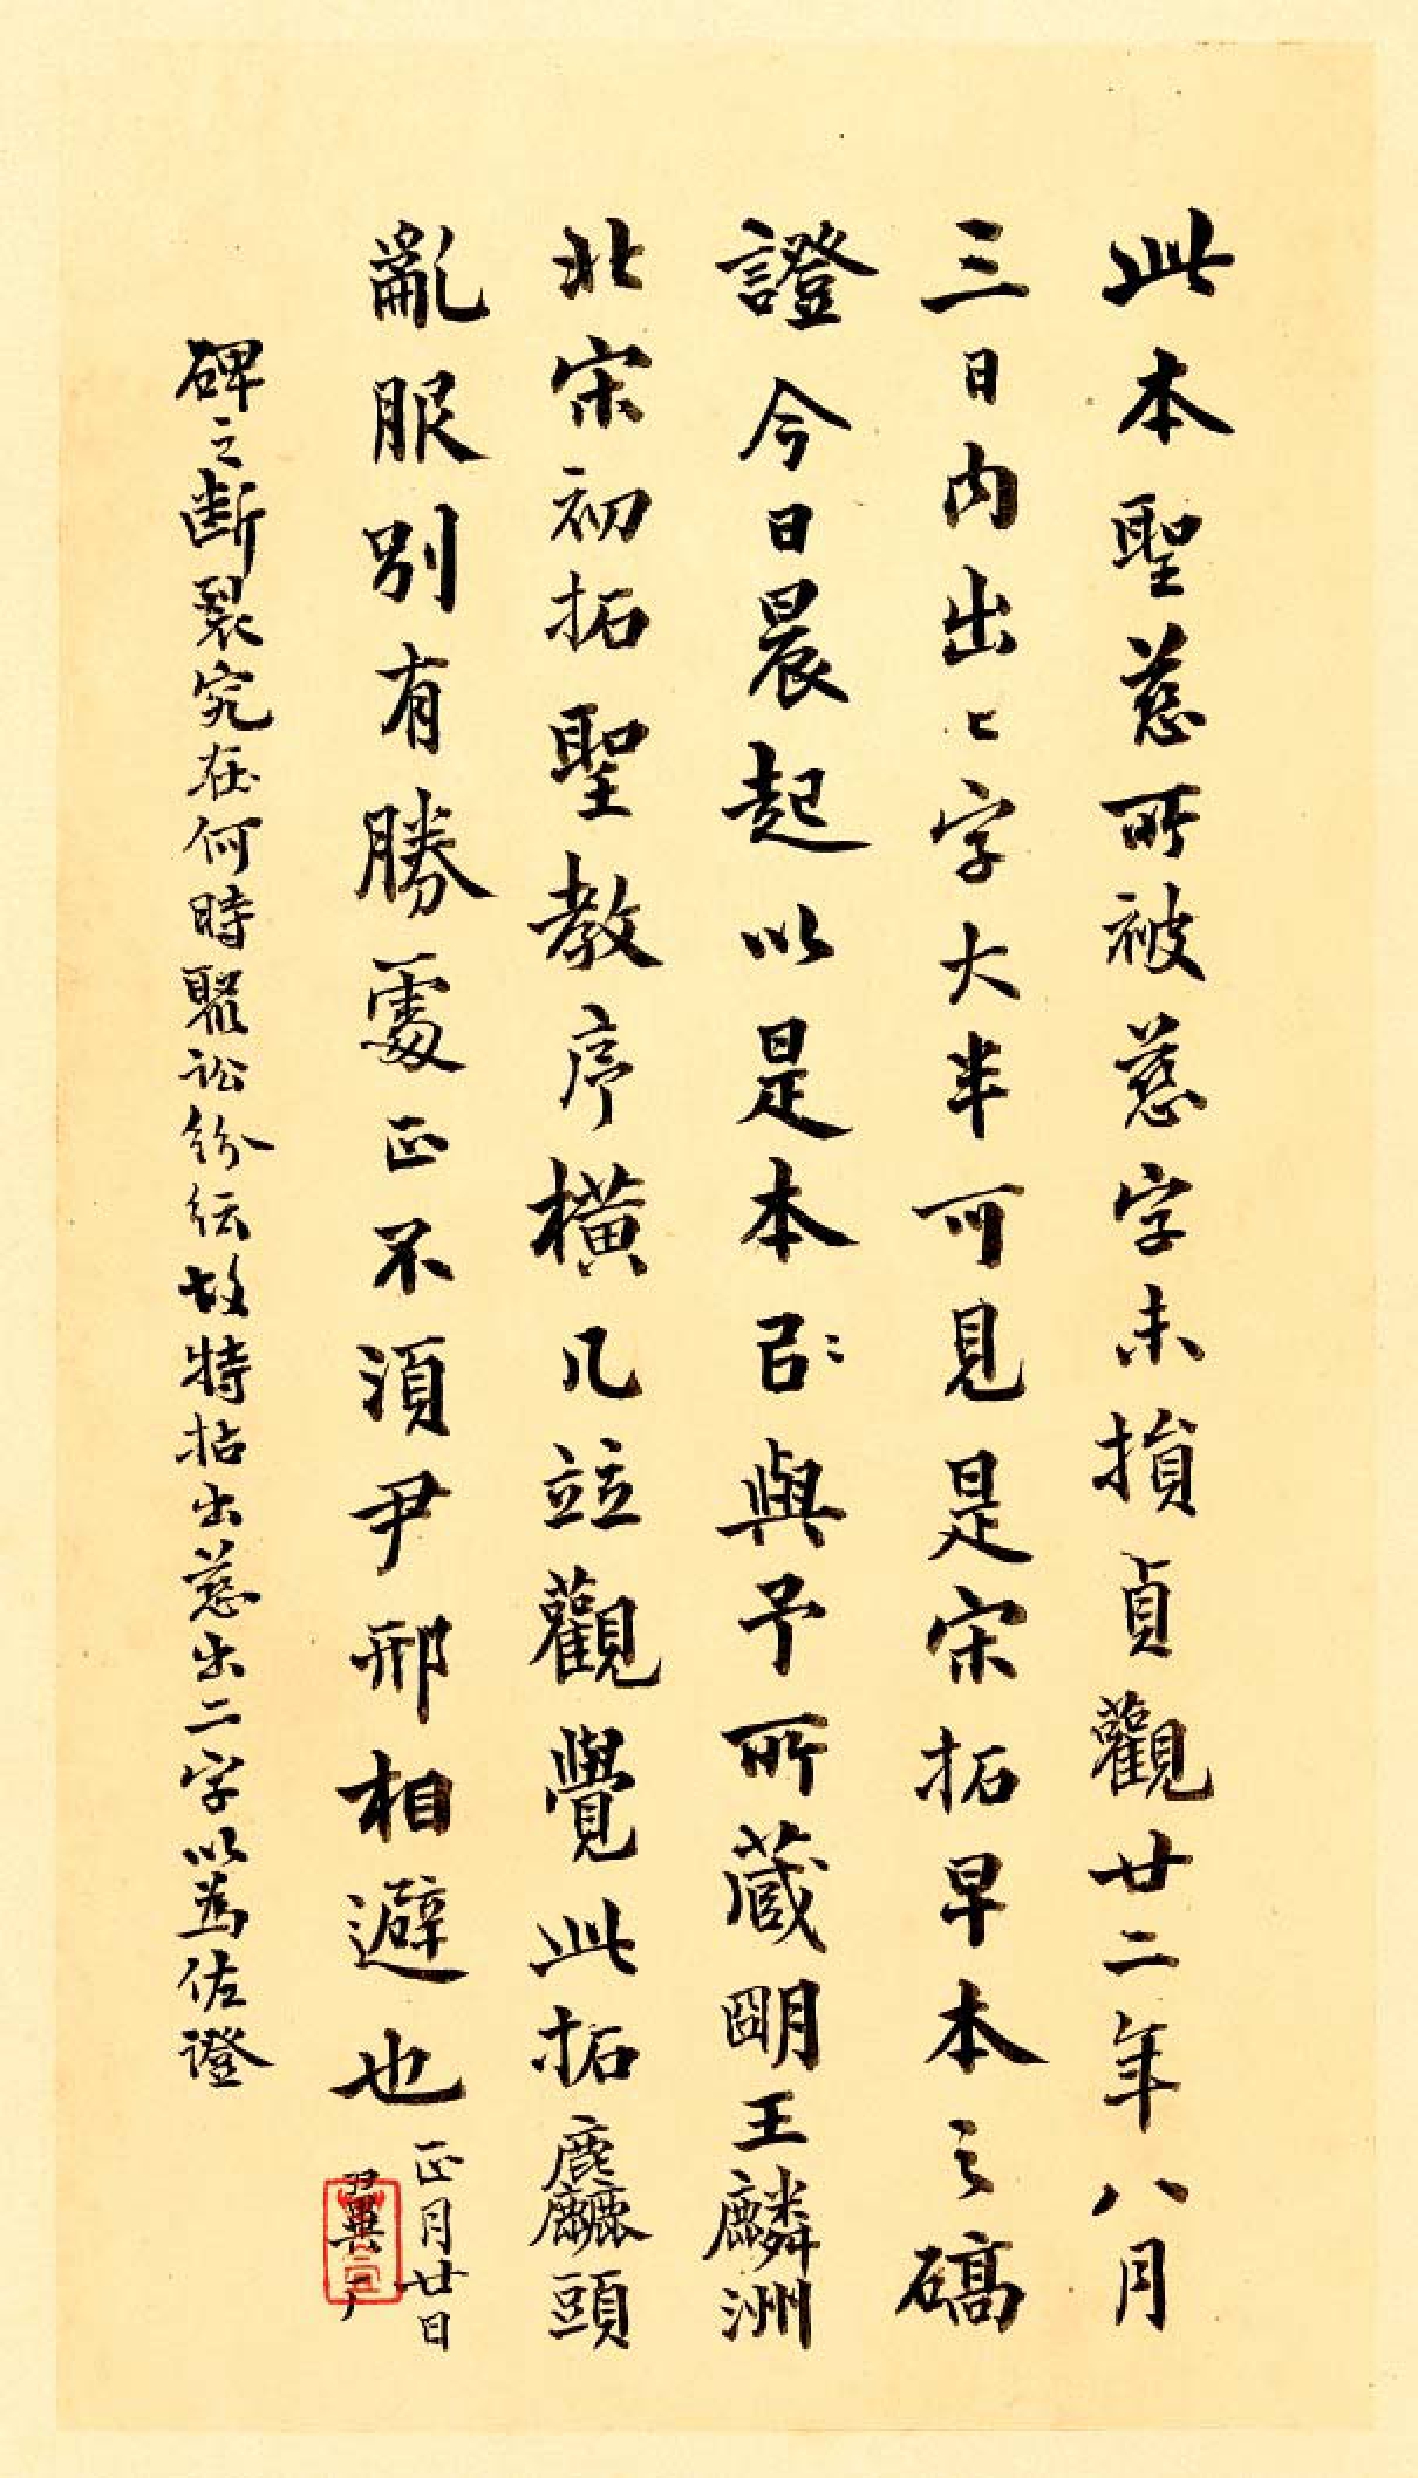 此本聖慈所被慈字未損貞觀廿二年八月
三日內出〻字大半可見是宋拓早本之碻
證今日晨起以是本㠯與予所藏朙王麟洲
北宋初拓聖教序橫几竝觀覺此拓麤頭
亂服別有勝處正不須尹邢相避也
正月廿日
翼厂
碑之斷裂究在何時聚訟紛紜故特拈出慈出二字以為佐證